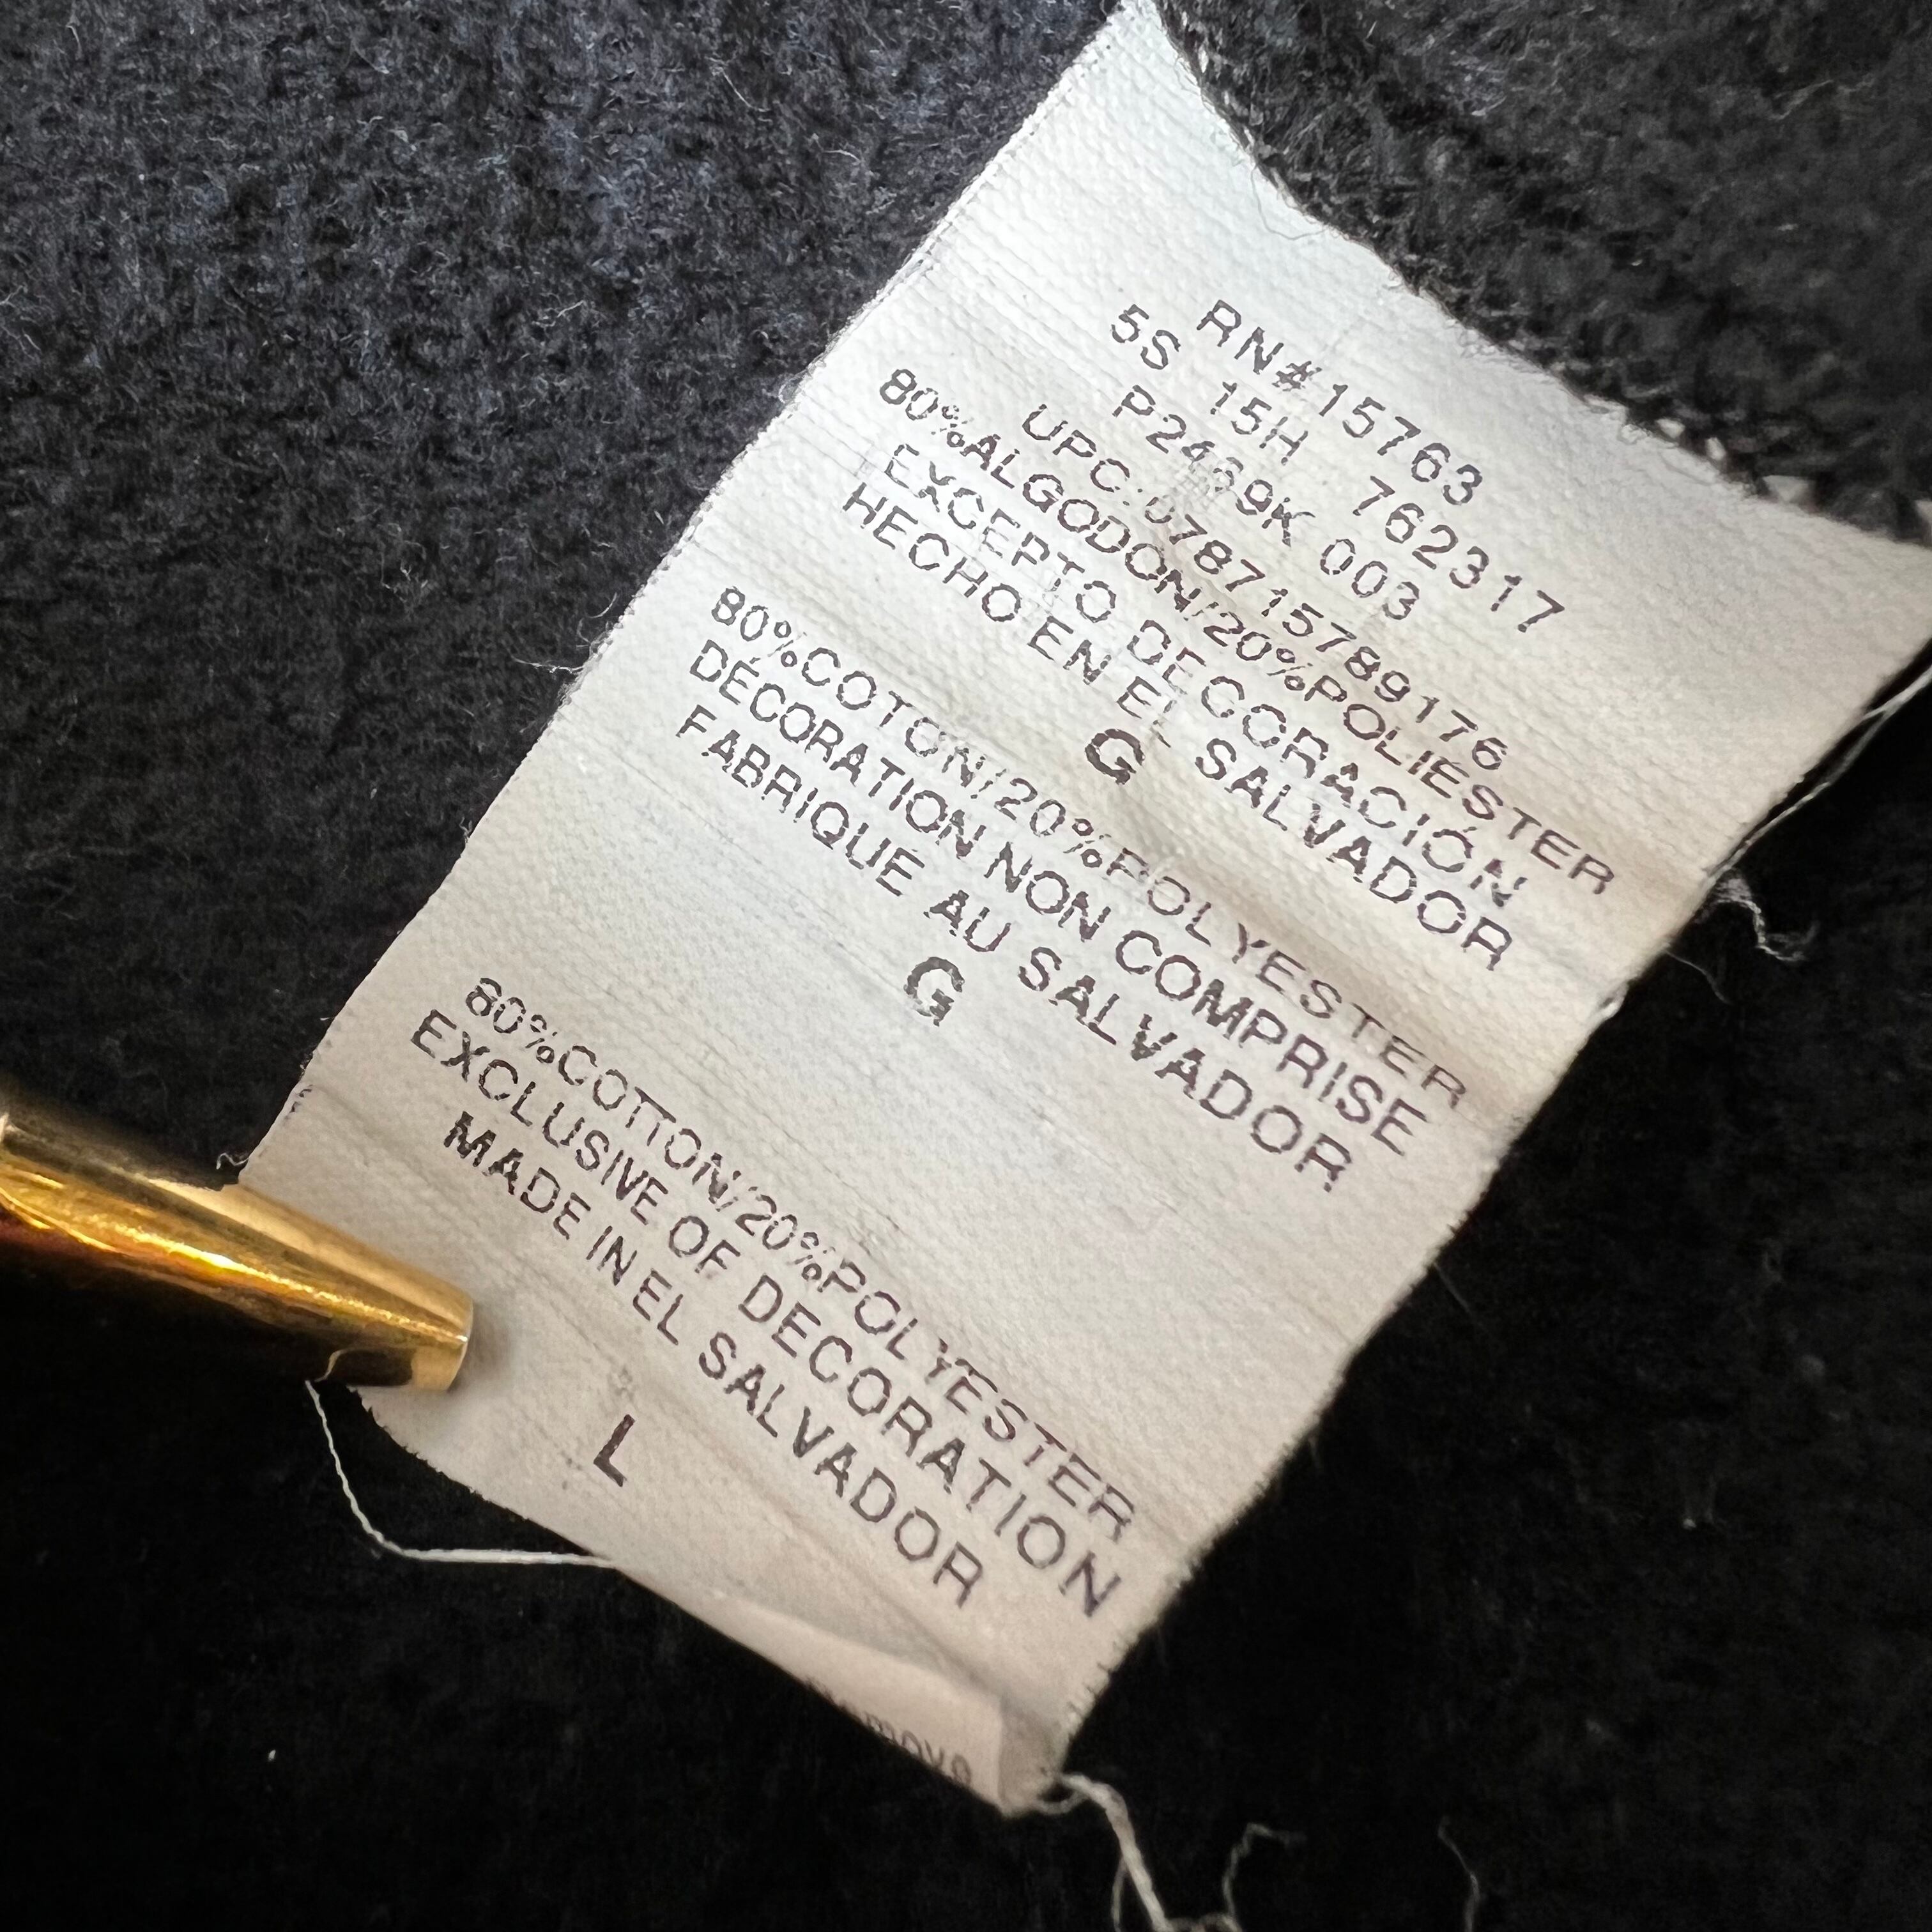 RN#15763
5S 15H 762317
P2469K 003
UPC:078715789176
80%ALGODON/20%POLIÉSTER
EXCEPTO DECORACIÓN
HECHO EN EL SALVADOR
G
80%COTON/20%POLYESTER
DÉCORATION NON COMPRISE
FABRIQUÉ AU SALVADOR
G
80%COTTON/20%POLYESTER
EXCLUSIVE OF DECORATION
MADE IN EL SALVADOR
L